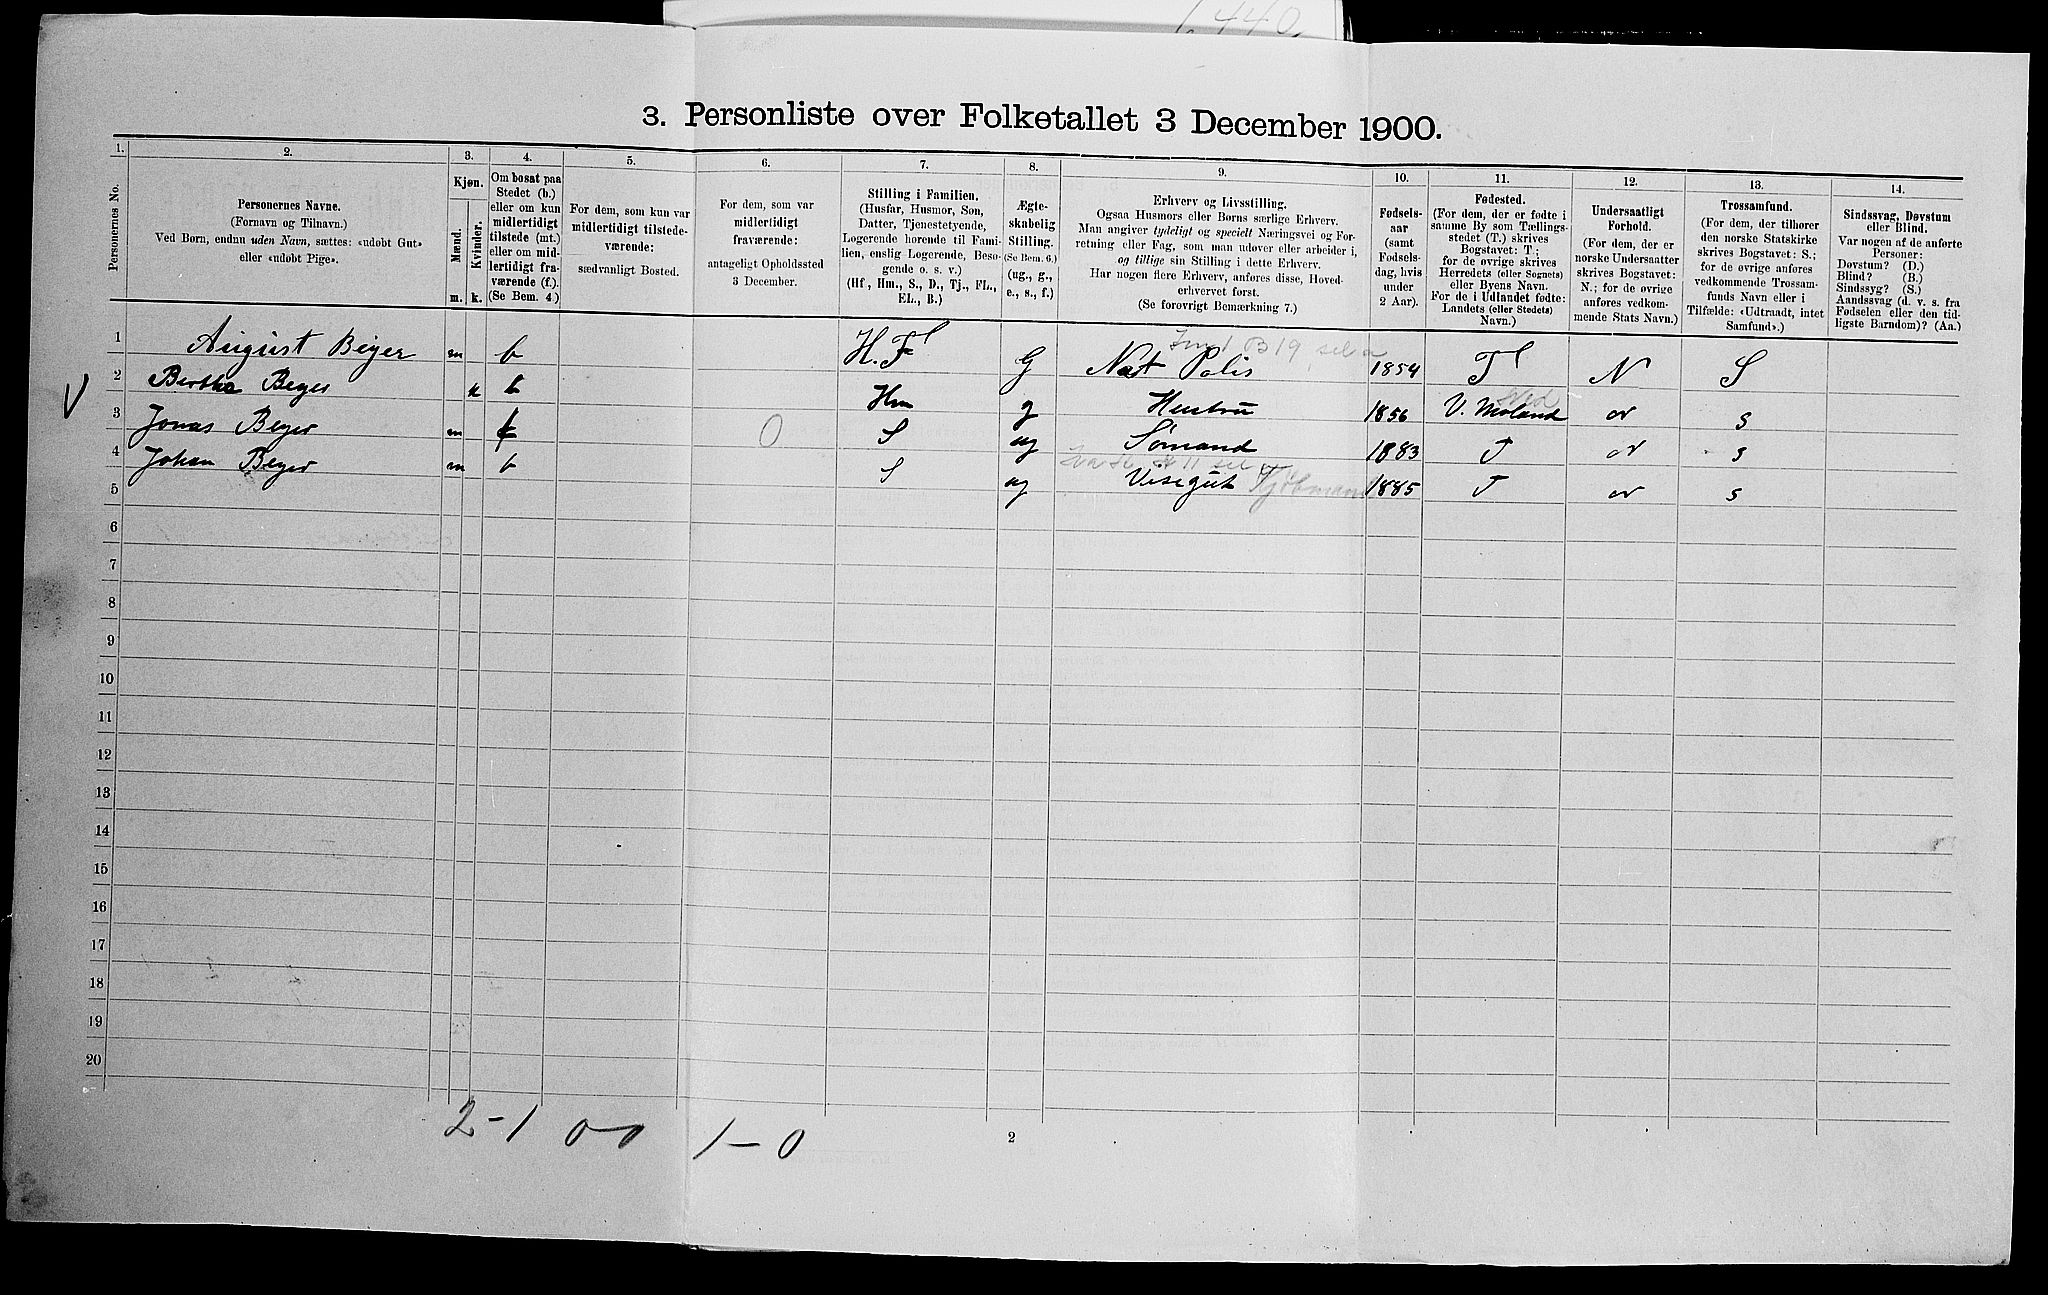 440
3. Personliste over Folketallet 3 December 1900.
1. 2. 3. 4. 5. 6. 7. 8. 9. 10. 11. 12. 13. 14.
Personernes No.
Personernes Navne.
(Fornavn og Tilnavn.)
Ved Børn, endnu uden Navn, sættes: «udøbt Gut»
eller «udøbt Pige».
Kjøn.
Mænd.
Kvinder.
m. k.
Om bosat paa
Stedet (b.)
eller om kun
midlertidigt
tilstede (mt.)
eller om mid-
lertidigt fra-
værende (f.).
(Se Bem. 4.)
For dem, som kun var
midlertidigt tilstede-
værende:
sædvanligt Bosted.
For dem, som var
midlertidigt
fraværende:
antageligt Opholdssted
3 December.
Stilling i Familien.
(Husfar, Husmor, Søn,
Datter, Tjenestetyende,
Logerende hørende til Fami-
lien, enslig Logerende, Besø-
gende o. s. v.)
(Hf, Hm., S., D., Tj., FL.,
EL., B.)
Ægte-
skabelig
Stilling.
(Se Bem. 6.)
(ug., g.,
e., s., f.)
Erhverv og Livsstilling.
Ogsaa Husmors eller Børns særlige Erhverv.
Man angiver tydeligt og specielt Næringsvei og For-
retning eller Fag, som man udøver eller arbeider i,
og tillige sin Stilling i dette Erhverv.
Har nogen flere Erhverv, anføres disse, Hoved-
erhvervet først.
(Se forøvrigt Bemærkning 7.)
Fødsels-
aar
(samt
Fødsels-
dag, hvis
under
2 Aar).
Fødested.
(For dem, der er fødte i
samme By som Tællings-
stedet (T.) skrives
Bogstavet: T.;
for de øvrige skrives
Herredets (eller Sognets)
eller Byens Navn.
For de i Udlandet fødte:
Landets (eller Stedets)
Navn.)
Undersaatligt
Forhold.
(For dem, der er
norske Undersaatter
skrives Bogstavet:
N.; for de øvrige
anføres vedkom-
mende Stats Navn.)
Trossamfund.
(For dem, der tilhører
den norske Statskirke
skrives Bogstavet: S.;
for de øvrige anføres
vedkommende Trossam-
funds Navn eller i
Tilfælde: «Udtraadt, intet
Samfund».)
Sindssvag, Døvstum
eller Blind.
Var nogen af de anførte
Personer:
Døvstum? (D.)
Blind? (B.)
Sindssyg? (S.)
Aandssvag (d. v. s. fra
Fødselen eller den tid-
ligste Barndom)? (Aa.)
1 August Beyer m b H.F G Nat Polis 1854 T N S
B 19
2 Bertha Beyer k b Hm g Hustru 1856 V. Moland " s
V
3 Jonas Beyer m f 0 S ug Sømand 1883 T " s
4 Johan Beyer m b S ug Visegut Kjøbmand 1885 T " s
5
6
7
8
9
10
11
12
13
14
15
16
17
18
19
20
2-1 0-0 1-0
2